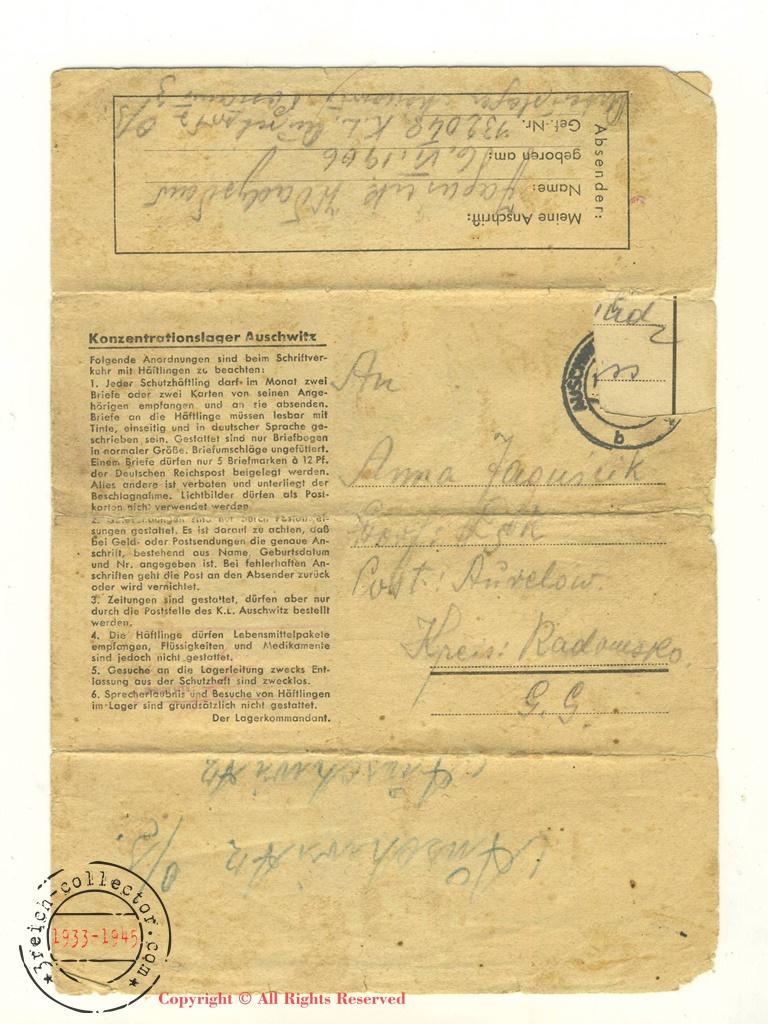 Absender:
Meine Anschrift:
Name:
geboren am: 16. VI. 1906
Gef.-Nr. 132048 K.L.
Konzentrationslager Auschwitz
Folgende Anordnungen sind beim Schriftver-
kehr mit Häftlingen zu beachten:
1. Jeder Schutzhäftling darf im Monat zwei
Briefe oder zwei Karten von seinen Ange-
hörigen empfangen und an sie absenden.
Briefe an die Häftlinge müssen lesbar mit
Tinte, einseitig und in deutscher Sprache ge-
schrieben sein. Gestattet sind nur Briefbogen
in normaler Größe. Briefumschläge ungefüttert.
Einem Briefe dürfen nur 5 Briefmarken à 12 Pf.
der Deutschen Reichspost beigelegt werden.
Alles andere ist verboten und unterliegt der
Beschlagnahme. Lichtbilder dürfen als Post-
karten nicht verwendet werden
2. sind nur durch
sungen gestattet. Es ist darauf zu achten, daß
bei Geld- oder Postsendungen die genaue An-
schrift, bestehend aus Name, Geburtsdatum
und Nr. angegeben ist. Bei fehlerhaften An-
schriften geht die Post an den Absender zurück
oder wird vernichtet.
3. Zeitungen sind gestattet, dürfen aber nur
durch die Poststelle des K.L. Auschwitz bestellt
werden.
4. Die Häftlinge dürfen Lebensmittelpakete
empfangen, Flüssigkeiten und Medikamente
sind jedoch nicht gestattet.
5. Gesuche an die Lagerleitung zwecks Ent-
lassung aus der Schutzhaft sind zwecklos.
6. Sprecherlaubnis und Besuche von Häftlingen
im Lager sind grundsätzlich nicht gestattet.
Der Lagerkommandant.
An
Anna
Post: Aurelow
Kreis: Radomsko.
G.G.
AUSCHW
b
Auschwitz
Auschwitz O/S.
3reich-collector.com
1933-1945
Copyright © All Rights Reserved